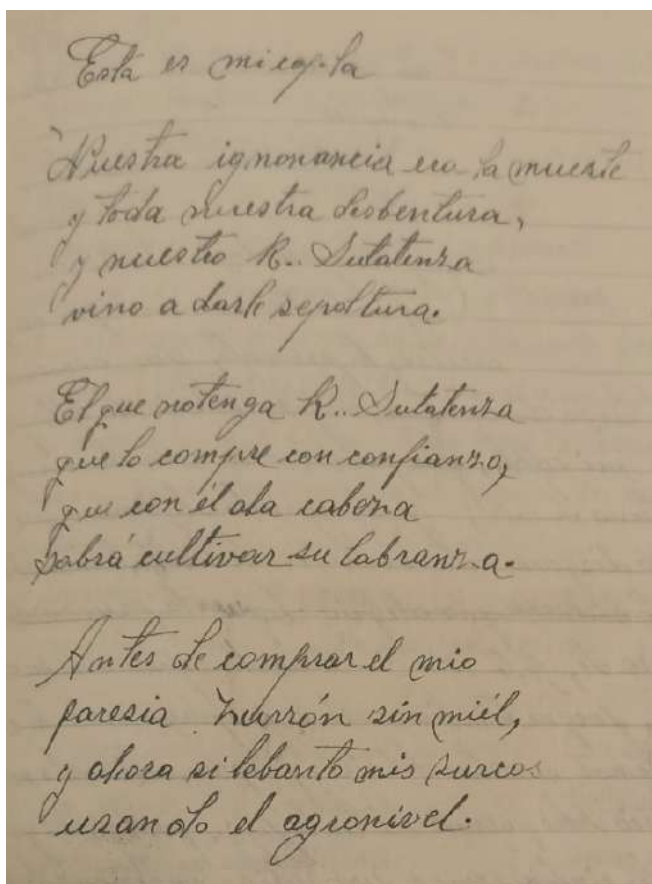 Esta es mi copla
Nuestra ignonancia era la muerte
y toda nuestra desbentura,
y nuestro R.. Sutatenza
vino a darle sepoltura.
El que notenga R.. Sutatenza
que lo compre con confianza,
que con él a la cabeza
sabrá cultivar su labranza.
Antes de comprar el mio
paresia zurrón sin miél,
y ahora si lebanto mis surcos
usando el agronivel.